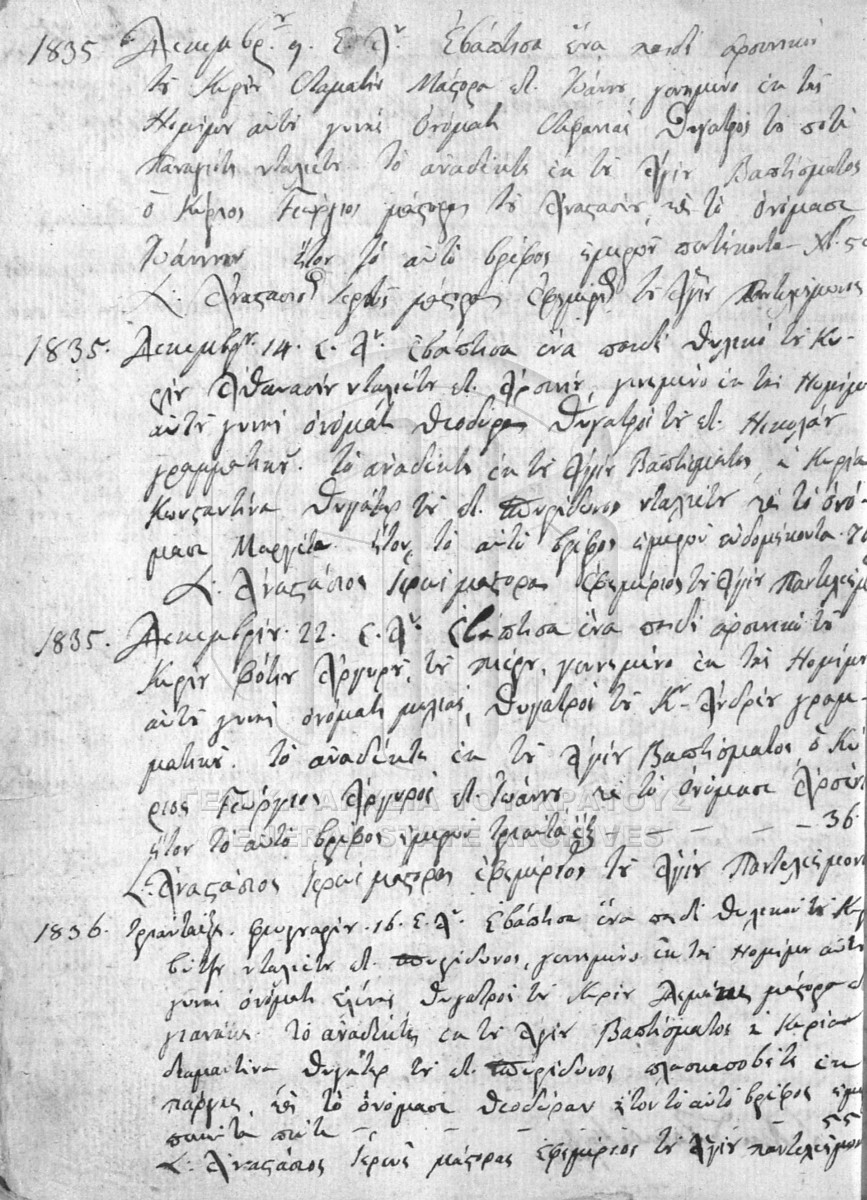 1835 Δεκεμβρ. 9. Ε. Π. Εβάπτισα ένα παιδί αρσενικό
του Κυρίου Σταματίου Μάστορα ετ. Ιωάννου, γεννημένο εκ της
Νομίμου αυτού γυνής ονόματι Στεφανιάς θυγατρός του ποτέ
Παναγιώτου νταλιέτου το ανεδέχτη εκ του Αγίου Βαπτίσματος
ο Κύριος Γεώργιος μάστορας του Αναστασίου, και το ονόμασε
Ιωάννην ήτον το αυτό βρέφος ημερών πενήκοντα
Αναστάσιος Ιερεύς μάστορας εφημέριος του Αγίου Παντελεήμονος
1835. Δεκεμβρίου. 14. Εβάπτισα ένα παιδί θυλικό του Κυ-
ρίου Αθανασίου νταλιέτου ετ. Αρσενίου, γεννημένο εκ της Νομίμου
αυτού γυνής ονόματι Θεοδώρας θυγατρός του ετ. Νικολάου
γραμματικού. το ανεδέχτη εκ του Αγίου Βαπτίσματος η Κυρία
Κωνσταντίνα θυγάτηρ του ετ. Σπυρίδωνος νταλιέτου και το ονό-
μασε Μαργέτα ήτον το αυτό βρέφος ημερών ευδομήκοντα
Αναστάσιος Ιερεύς μάστορας εφημέριος του Αγίου Παντελεήμ
1835. Δεκεμβρίου. 22. Εβάπτισα ένα παιδί αρσενικό του
Κυρίου Αργυρού του πιέρου, γεννημένο εκ της Νομίμου
αυτού γυνής ονόματι θυγατρός του Κυ Ανδρέου γραμ-
ματικού. το ανεδέχτη εκ του Αγίου Βαπτίσματος ο Κύ-
ριος Γεώργιος Αργυρός ετ Ιωάννου και το ονόμασε Αρσένι
ήτον το αυτό βρέφος ημερών τριάντα έξ — — — — 36
Αναστάσιος Ιερεύς μάστορας εφημέριος του Αγίου Παντελεήμονος
1836. τριανταέξη. φευρουαρίου. 16. Εβάπτισα ένα παιδί θυλικό του Κυ
νταλιέτου ετ. Σπυρίδωνος, γεννημένο εκ της Νομίμου αυτού
γυνής ονόματι ελένης θυγατρός του Κυρίου μάστορα
γιανάκη. το ανεδέχτη εκ του Αγίου Βαπτίσματος η Κυρία
διαμαντίνα θυγάτηρ του ετ. Σπυρίδωνος εκ
πάργας, και το ονόμασε Θεοδώραν ήτον το αυτό βρέφος ημε
πενήντα πέντε — — — — 55
Αναστάσιος Ιερεύς μάστορας εφημέριος του Αγίου παντελεήμον
ΓΕΝΙΚΑ ΑΡΧΕΙΑ ΤΟΥ ΚΡΑΤΟΥΣ
GENERAL STATE ARCHIVES